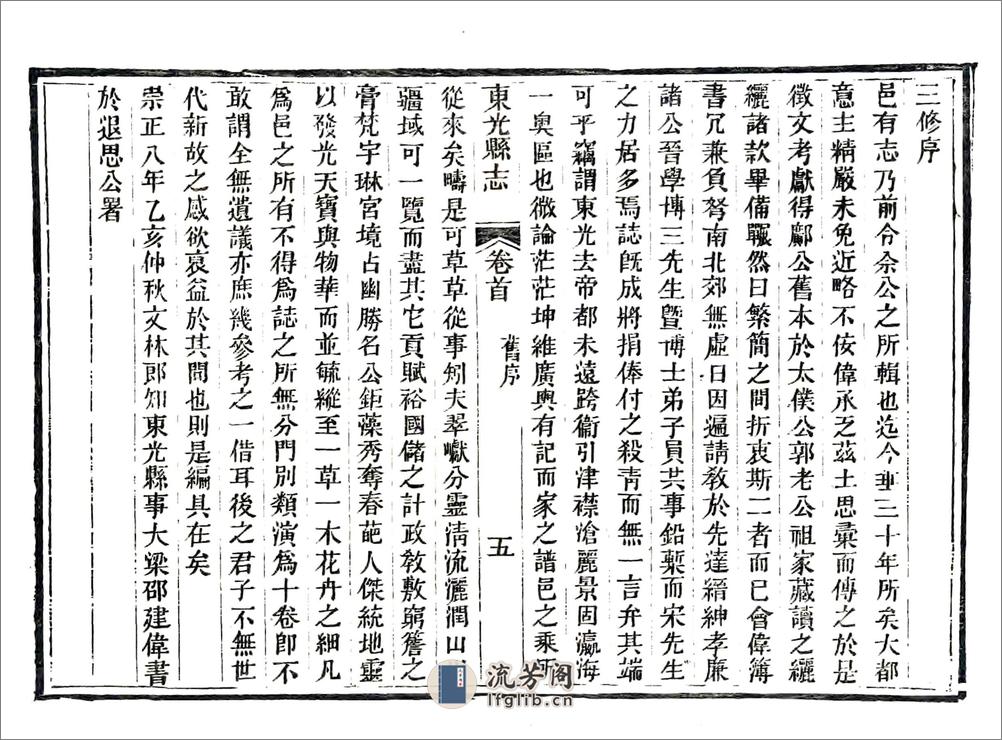 三修序
邑有志乃前令余公之所輯也迄今垂三十年所矣大都
意主精嚴未免近略不佞偉承乏茲土思彙而傳之於是
徵文考獻得鄺公舊本於太僕公郭老公祖家藏讀之纚
纚諸款畢備囅然曰繁簡之間折衷斯二者而已會偉簿
書冗兼負弩南北郊無虛日因遍請教於先達縉紳孝廉
諸公晉學博三先生暨博士弟子員共事鉛槧而宋先生
之力居多焉誌旣成將捐俸付之殺靑而無一言弁其端
可乎竊謂東光去帝都未遠跨衞引津襟滄麗景固瀛海
一奧區也微論茫茫坤維廣輿有記而家之譜邑之乘所
東光縣志 卷首 舊序 五
從來矣疇是可草草從事矧夫翠巘分靈淸流灑潤山川
疆域可一覽而盡其它貢賦裕國儲之計政敎敷窮簷之
膏梵宇琳宮境占幽勝名公鉅藻秀奪春葩人傑統地靈
以發光天寶與物華而並毓縱至一草一木花卉之細凡
爲邑之所有不得爲誌之所無分門別類演爲十卷卽不
敢謂全無遺議亦庶幾參考之一借耳後之君子不無世
代新故之感欲裒益於其間也則是編具在矣
崇正八年乙亥仲秋文林郎知東光縣事大梁邵建偉書
於退思公署
流芳閣
lfglib.cn